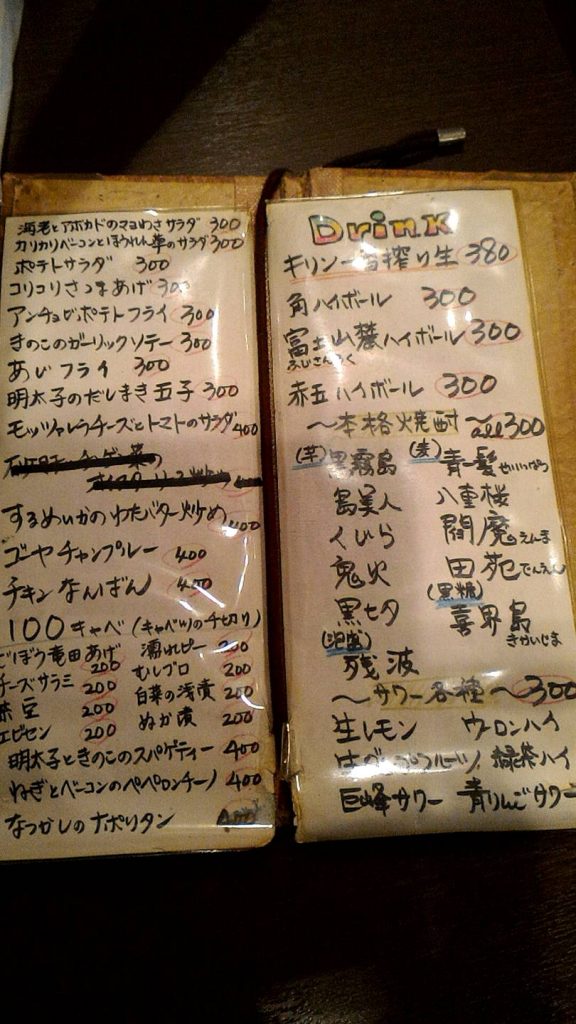 海老とアボカドのマヨわさサラダ 300
カリカリベーコンとほうれん草のサラダ 300
ポテトサラダ 300
コリコリさつまあげ 300
アンチョビポテトフライ 300
きのこのガーリックソテー 300
あじフライ 300
明太子のだしまき玉子 300
モッツァレラチーズとトマトのサラダ 400
するめいかのわたバター炒め 400
ゴーヤチャンプルー 400
チキンなんばん 400
100キャベ (キャベツのチギリ)
ごぼう竜田あげ 200 濡れピー 200
チーズサラミ 200 むしブロ 200
茶豆 200 白菜の浅漬 200
エビセン 200 ぬか漬 200
明太子ときのこのスパゲティー 400
ねぎとベーコンのペペロンチーノ 400
なつかしのナポリタン 400
Drink
キリン一番搾り生 380
角ハイボール 300
富士山麓ハイボール 300
ふじさんろく
赤玉ハイボール 300
〜本格焼酎〜 all 300
(芋) 黒霧島 (麦) 青一髪 せいいっぱつ
島美人 八重桜
くじら 閻魔 えんま
鬼火 田苑 でんえん
黒七夕 (黒糖) 喜界島 きかいじま
(泡盛) 残波
〜サワー各種〜 300
生レモン ウーロンハイ
生グレープフルーツ 緑茶ハイ
巨峰サワー 青りんごサワー